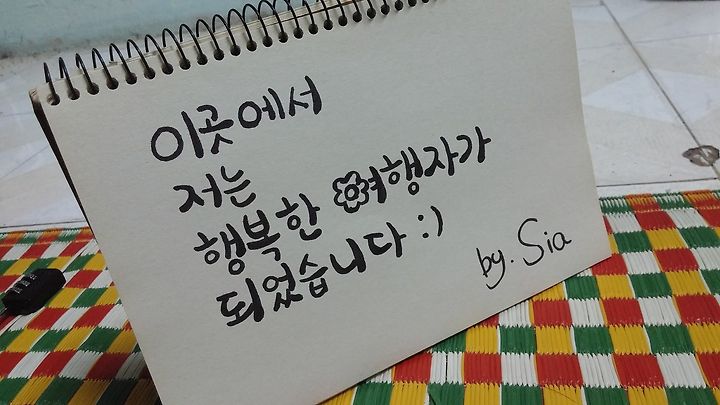 이곳에서
저는
행복한 여행자가
되었습니다 :)
by. Sia